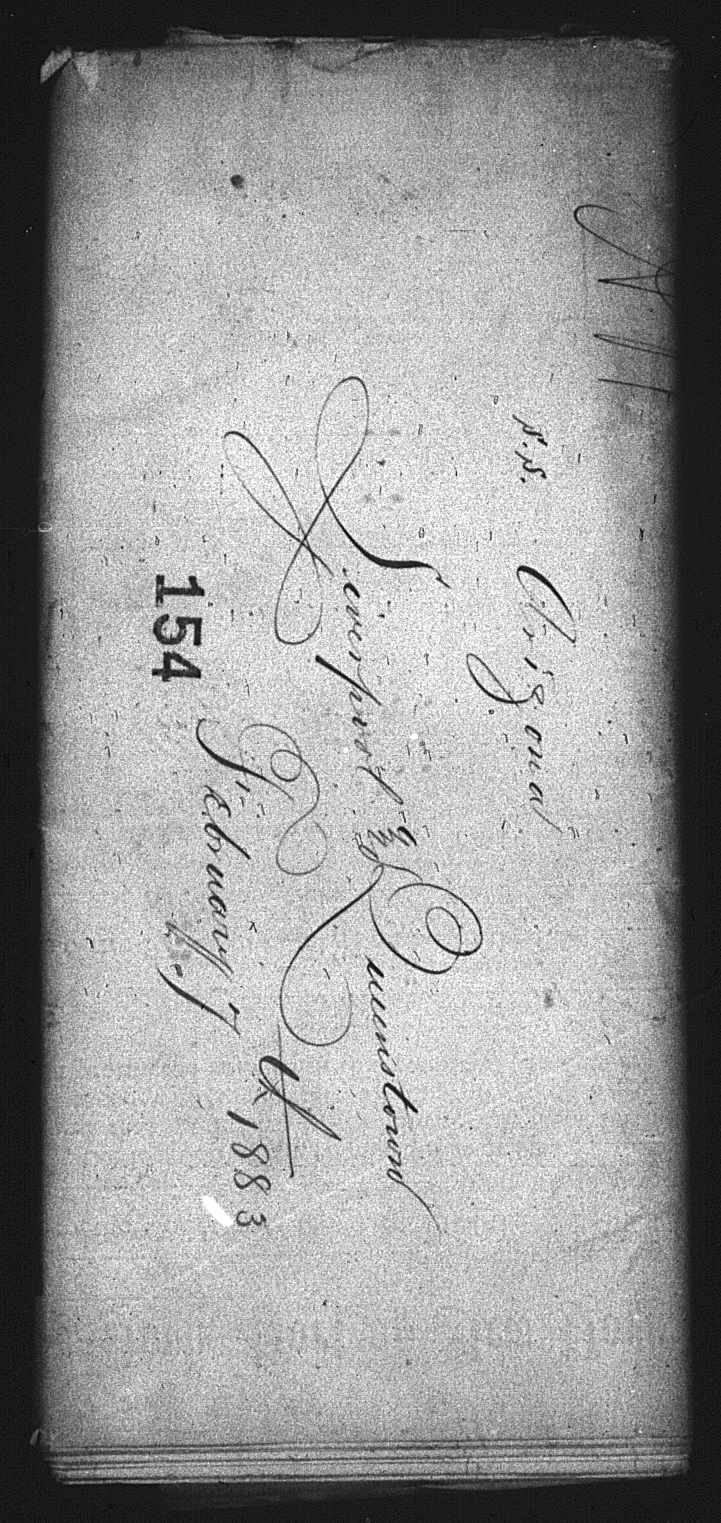 S.S. Arizona
Liverpool & Queenstown
February 5 1883
154